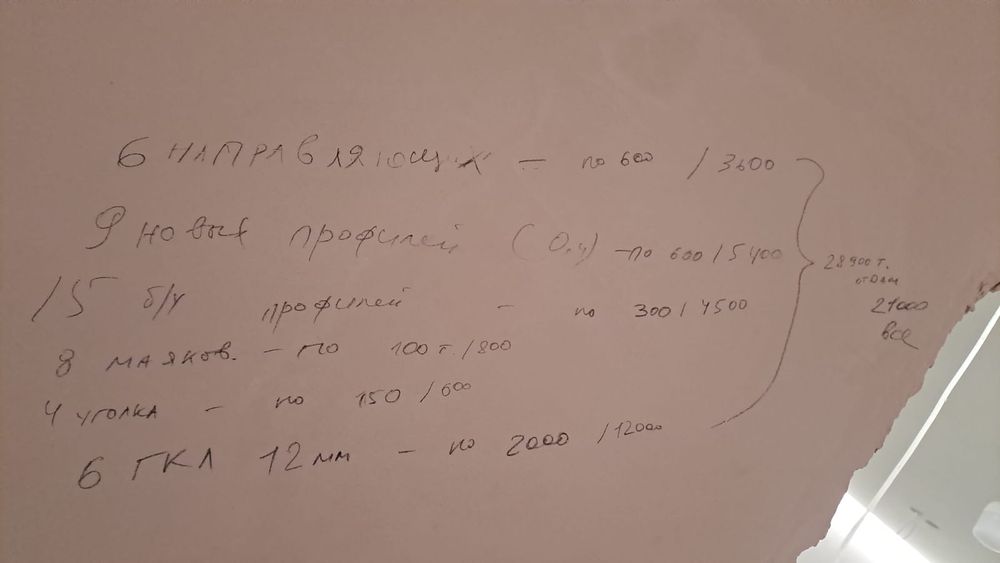 6 направляющих – по 600 / 3600
9 новых профилей (0.4) – по 600 / 5400
15 б/у профилей – по 300 / 4500
8 маяков. – по 100 т. / 800
4 уголка – по 150 / 600
6 ГКЛ 12 мм – по 2000 / 12000
28900 т.
отдам
21000
все